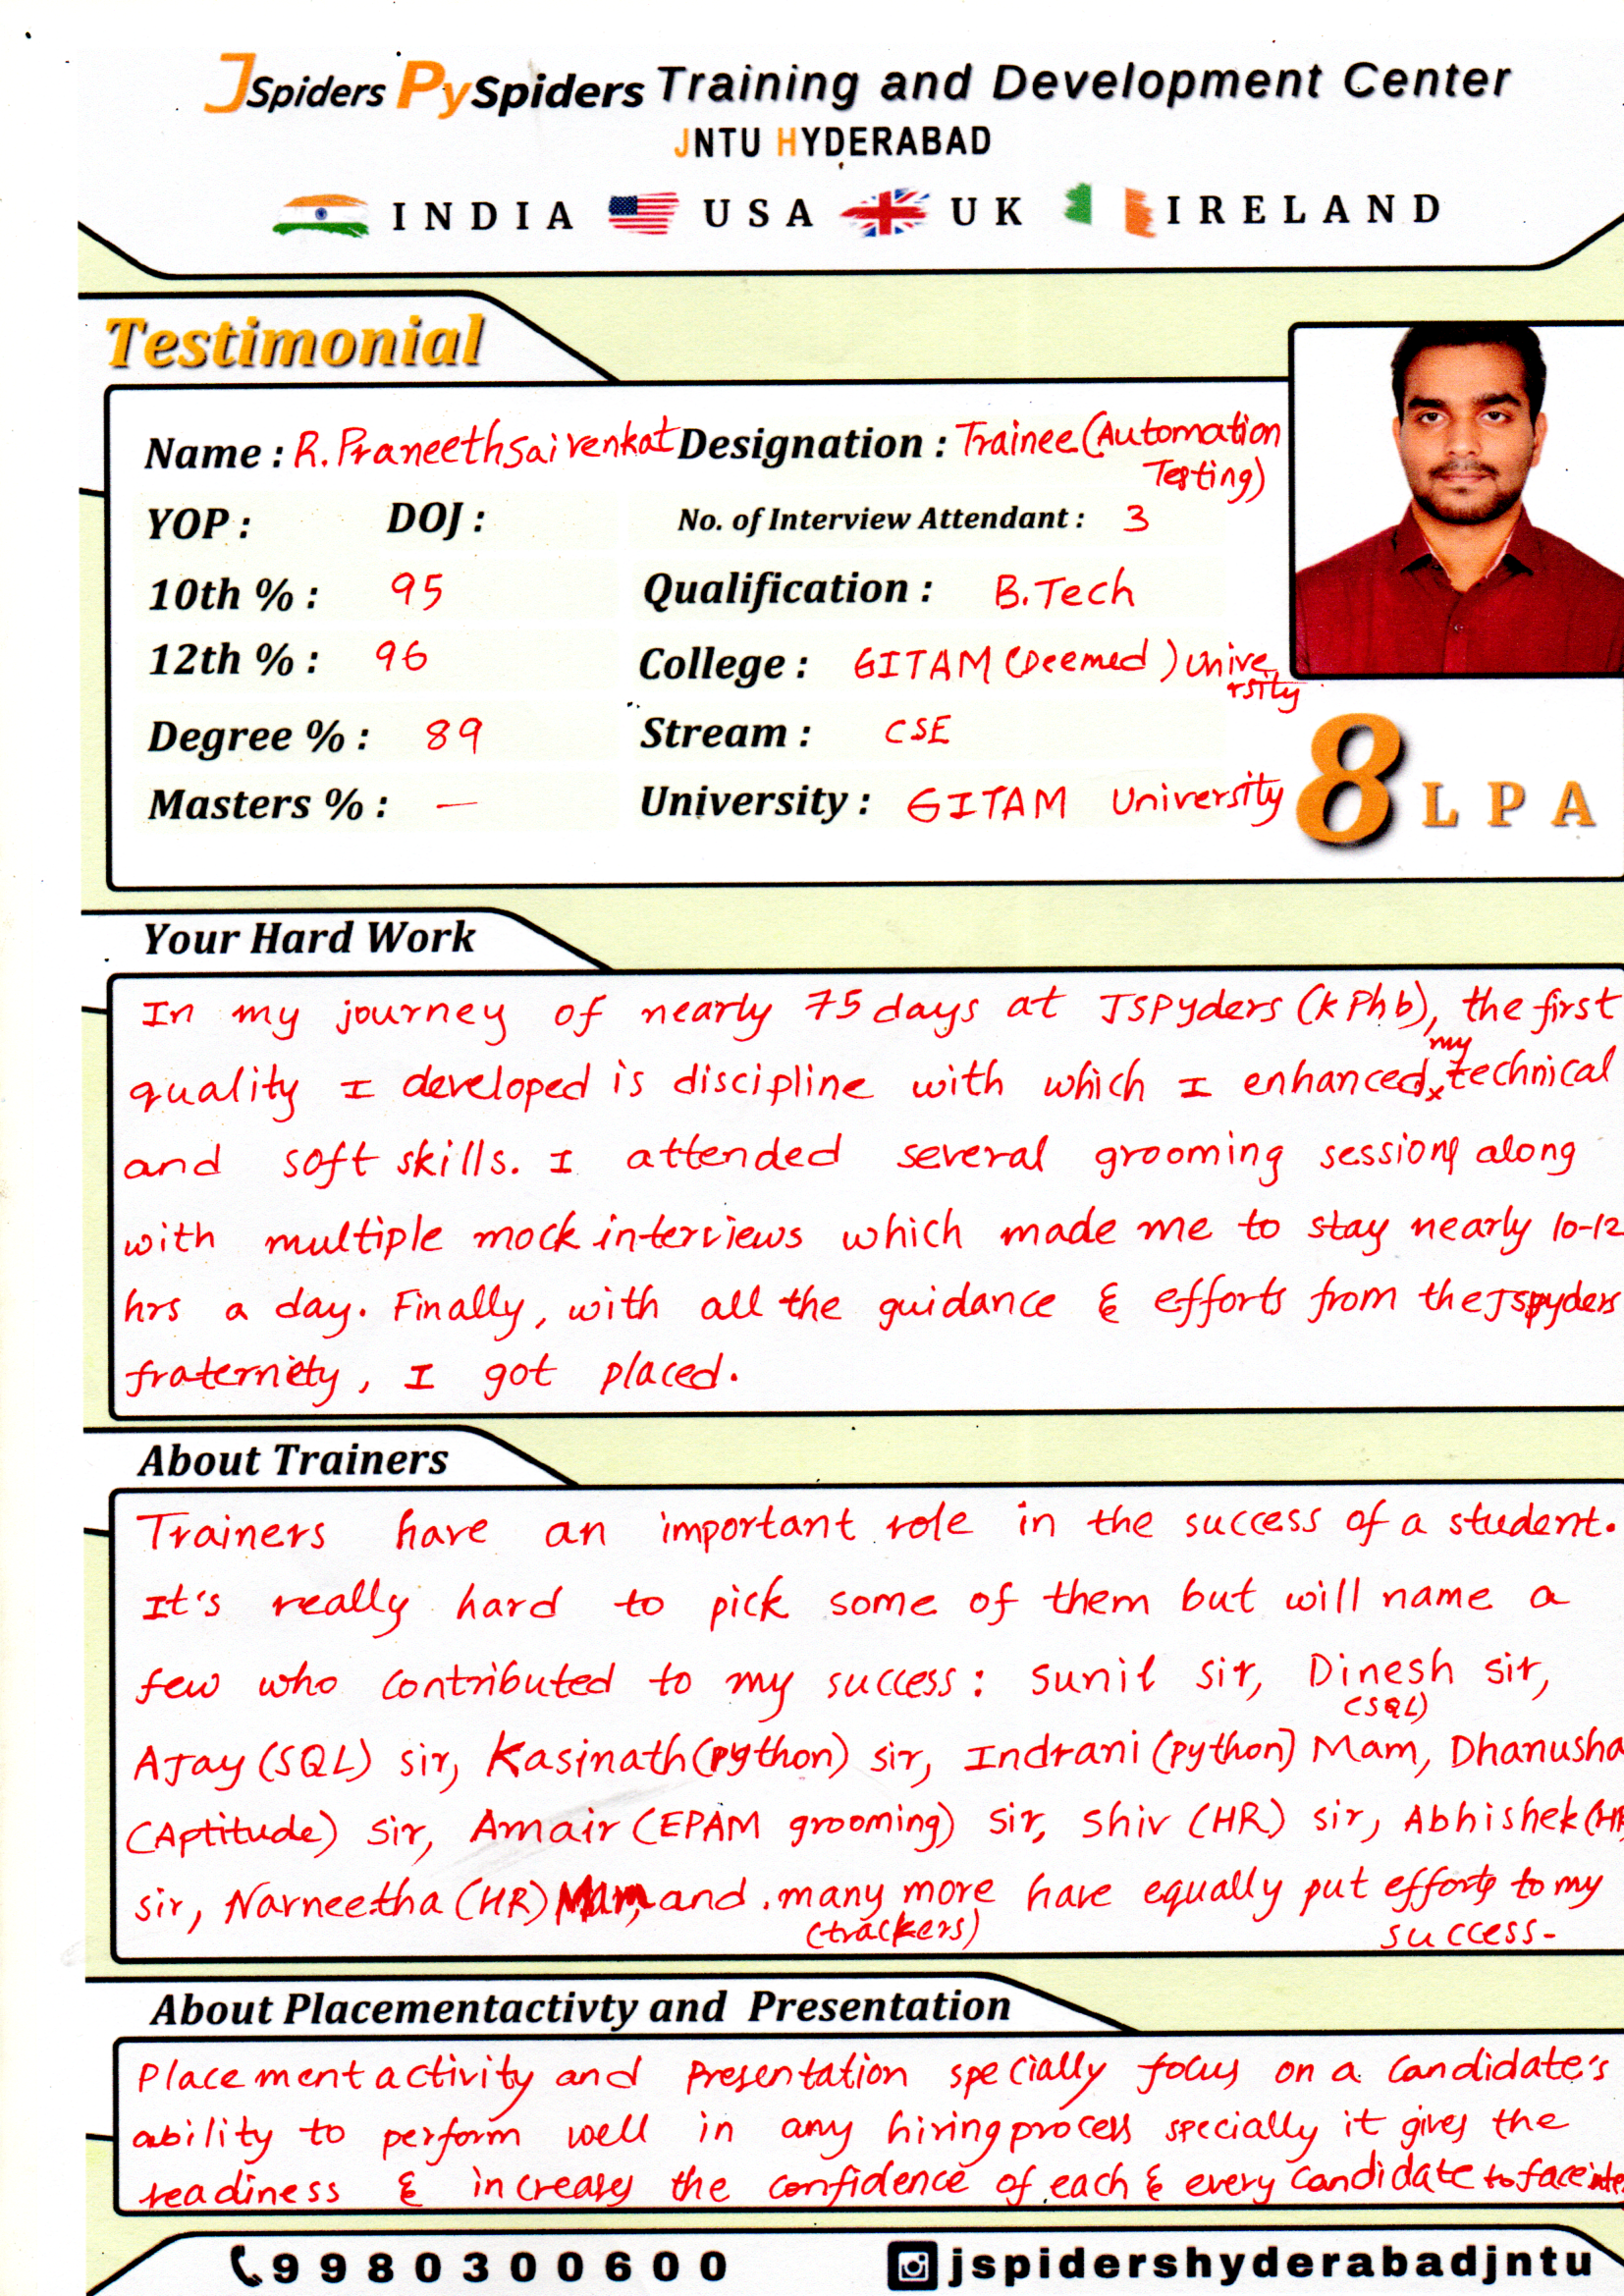 JSpiders PySpiders Training and Development Center
JNTU HYDERABAD
INDIA USA UK IRELAND
Testimonial
Name : R. Praneethsaivenkat Designation : Trainee (Automation
Testing)
YOP : DOJ : No. of Interview Attendant : 3
10th % : 95 Qualification : B.Tech
12th % : 96 College : GITAM (Deemed) unive
rsity
Degree % : 89 Stream : CSE
Masters % : — University : GITAM University
8 LPA
Your Hard Work
In my journey of nearly 75 days at JSPyders (kPhb), the first
my
quality I developed is discipline with which I enhanced technical
and soft skills. I attended several grooming sessions along
with multiple mock interviews which made me to stay nearly 10-12
hrs a day. Finally, with all the guidance & efforts from the Jspyders
fraternity, I got placed.
About Trainers
Trainers have an important role in the success of a student.
It's really hard to pick some of them but will name a
few who contributed to my success: Sunil sir, Dinesh sir,
(SQL)
AJay (SQL) sir, Kasinath (python) sir, Indrani (python) Mam, Dhanusha
(Aptitude) sir, Amair (EPAM grooming) sir, Shiv (HR) sir, Abhishek (HR
sir, Navneetha (HR) Mam, and many more have equally put efforts to my
(trackers) success.
About Placementactivty and Presentation
Placement activity and Presentation specially focus on a candidate's
ability to perform well in any hiring process specially it gives the
readiness & increases the confidence of each & every candidate to face
9980300600 jspidershyderabadjntu